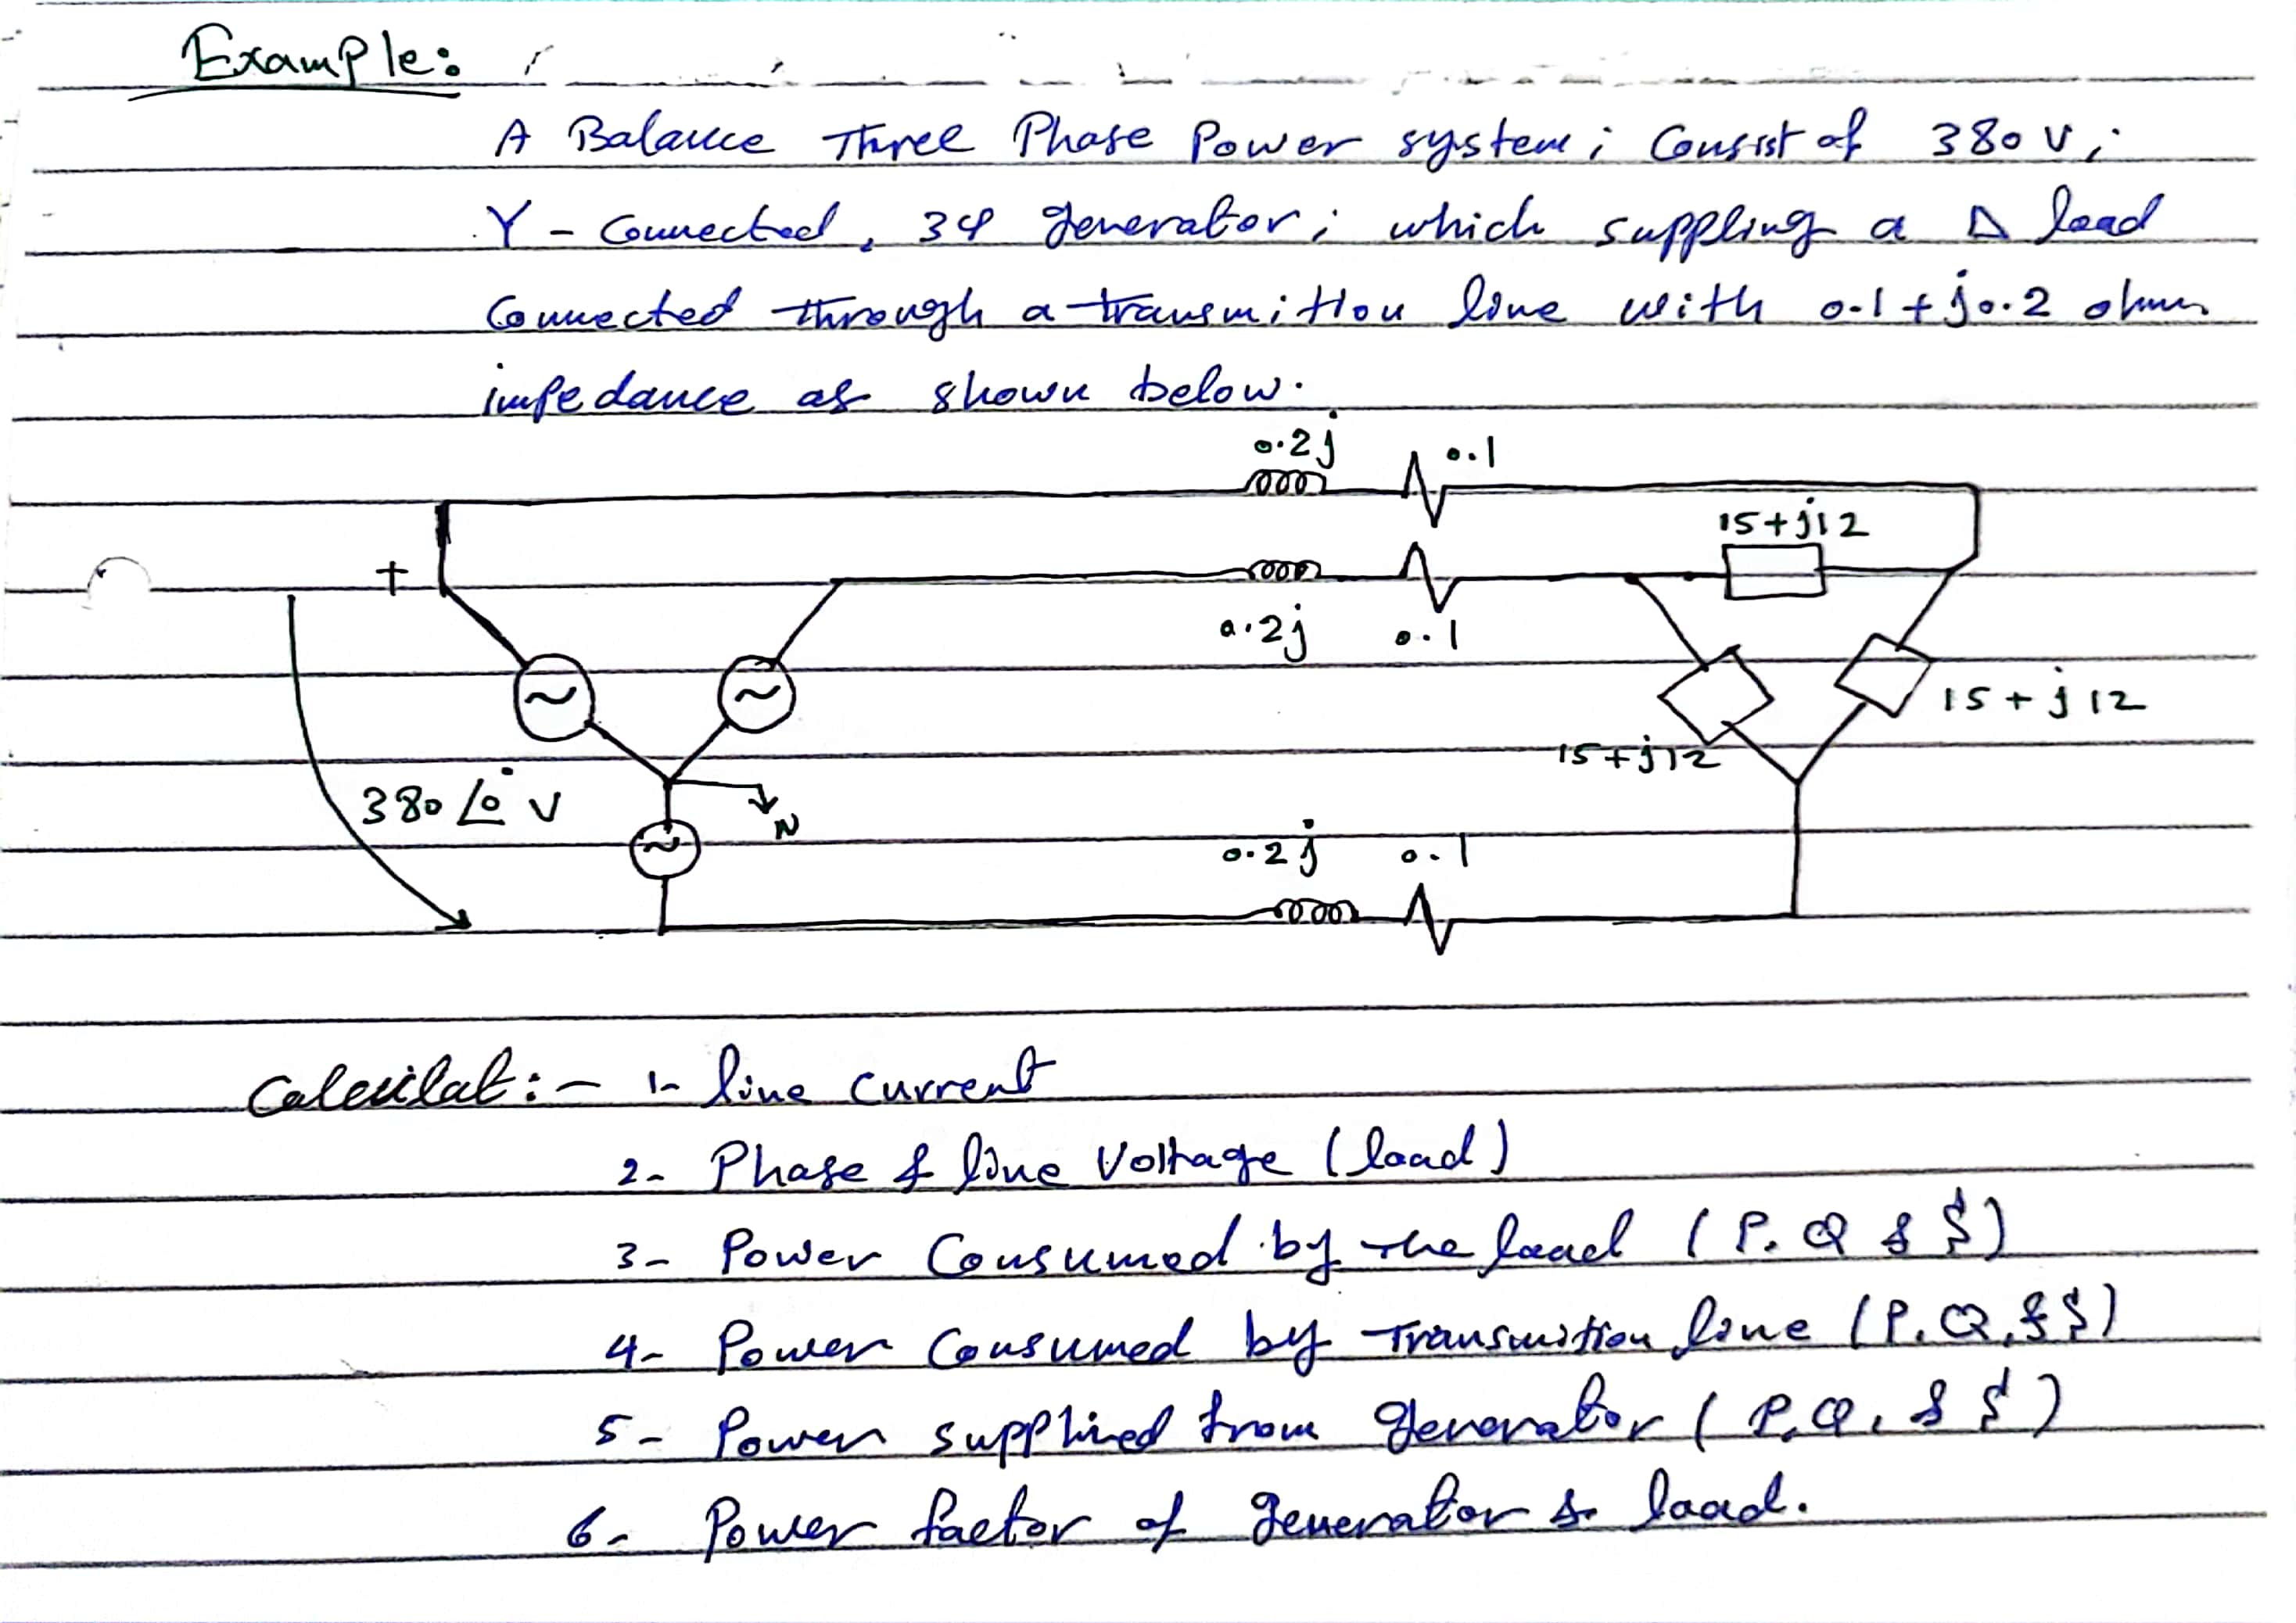 Example:
A Balance Three Phase Power system; Consist of 380 V;
Y - Connected, 3φ generator; which suppling a Δ load
Connected through a transmition line with 0.1 + j0.2 ohm
impedance as shown below.
0.2j 0.1
15+j12
+
0.2j 0.1
15 + j12
15+j12
380∠0° V
N
0.2j 0.1
Calculat:- 1- line current
2- Phase & line Voltage (load)
3- Power Consumed by the load (P. Q & S)
4- Power Consumed by Transmition line (P. Q, & S)
5- Power supplied from generator (P, Q, & S)
6- Power factor of generator & load.